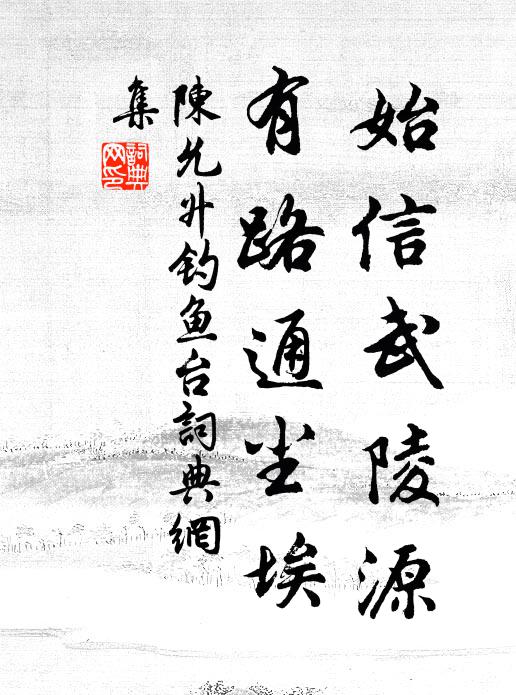 始信武陵源
有路通尘埃
陳允升钓鱼台詞典網
集
詞典网印